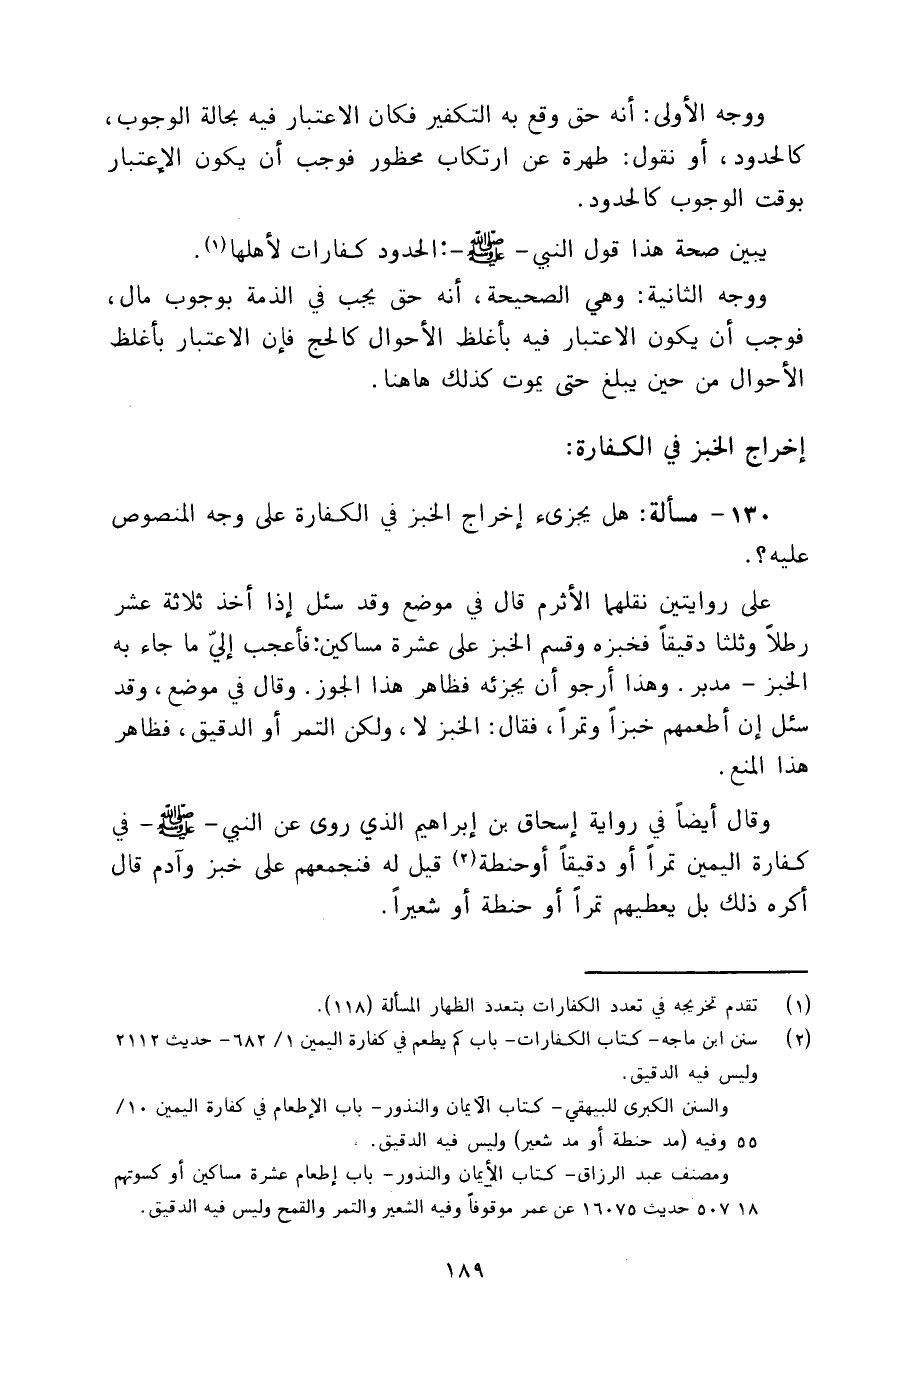 ووجه الأولى: أنه حق وقع به التكفير فكان الاعتبار فيه بحالة الوجوب،
كالحدود، أو نقول: طهرة عن ارتكاب محظور فوجب أن يكون الإعتبار
بوقت الوجوب كالحدود.
يبين صحة هذا قول النبي- ﷺ-:الحدود كفارات لأهلها(١).
ووجه الثانية: وهي الصحيحة، أنه حق يجب في الذمة بوجوب مال،
فوجب أن يكون الاعتبار فيه بأغلظ الأحوال كالحج فإن الاعتبار بأغلظ
الأحوال من حين يبلغ حتى يموت كذلك هاهنا.
إخراج الخبز في الكفارة:
١٣٠- مسألة: هل يجزىء إخراج الخبز في الكفارة على وجه المنصوص
عليه؟.
على روايتين نقلهما الأثرم قال في موضع وقد سئل إذا أخذ ثلاثة عشر
رطلاً وثلثا دقيقاً فخبزه وقسم الخبز على عشرة مساكين:فأعجب إليّ ما جاء به
الخبز - مدبر. وهذا أرجو أن يجزئه فظاهر هذا الجوز. وقال في موضع، وقد
سئل إن أطعمهم خبزاً وتمراً، فقال: الخبز لا، ولكن التمر أو الدقيق، فظاهر
هذا المنع.
وقال أيضاً في رواية إسحاق بن إبراهيم الذي روى عن النبي- ﷺ- في
كفارة اليمين تمراً أو دقيقاً أوحنطة(٢) قيل له فنجمعهم على خبز وآدم قال
أكره ذلك بل يعطيهم تمراً أو حنطة أو شعيراً.
(١) تقدم تخريجه في تعدد الكفارات بتعدد الظهار المسألة (١١٨).
(٢) سنن ابن ماجه- كتاب الكفارات- باب كم يطعم في كفارة اليمين ١/ ٦٨٢- حديث ٢١١٢
وليس فيه الدقيق.
والسنن الكبرى للبيهقي- كتاب الأيمان والنذور- باب الإطعام في كفارة اليمين ١٠/
٥٥ وفيه (مد حنطة أو مد شعير) وليس فيه الدقيق.
ومصنف عبد الرزاق- كتاب الأيمان والنذور- باب إطعام عشرة مساكين أو كسوتهم
٨١ ٥٠٧ حديث ١٦٠٧٥ عن عمر موقوفاً وفيه الشعير والتمر والقمح وليس فيه الدقيق.
١٨٩